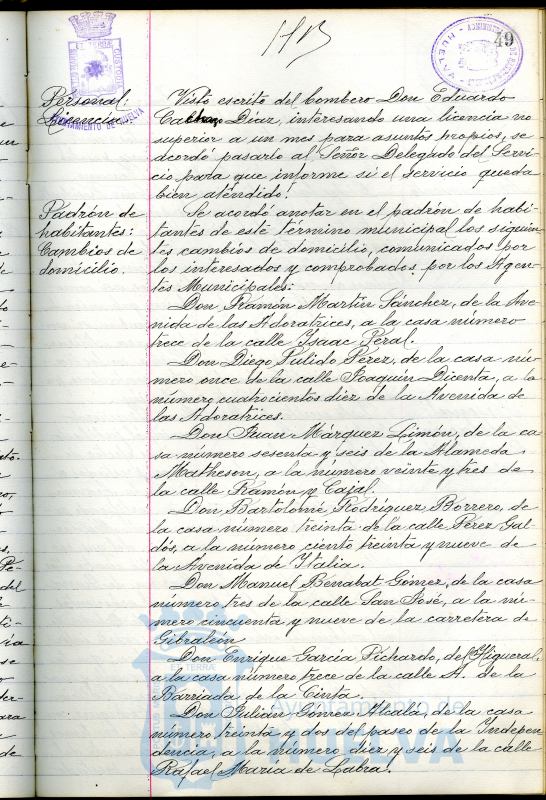 49
Personal:
Licencia.
AYUNTAMIENTO DE HUELVA
Visto escrito del bombero Don Eduardo
Díaz, interesando una licencia no
superior a un mes para asuntos propios, se
acordó pasarlo al Señor Delegado del Servi-
cio para que informe si el servicio queda
bien aténdido.
Padrón de
habitantes:
Cambios de
domicilio.
Se acordó anotar en el padrón de habi-
tantes de este término municipal los siguien-
tes cambios de domicilio, comunicados por
los interesados y comprobados por los Agen-
tes Municipales:
Don Ramón Martín Sánchez, de la Ave-
nida de las Adoratrices, a la casa número
trece de la calle Isaac Peral.
Don Diego Pulido Perez, de la casa nú-
mero once de la calle Joaquín Dicenta, a la
número cuatrocientos diez de la Avenida de
las Adoratrices.
Don Juan Márquez Limón, de la ca
sa número sesenta y seis de la Alameda
Matheson, a la número veinte y tres de
la calle Ramón y Cajal.
Don Bartolomé Rodríguez Borrero, de
la casa número treinta de la calle Pérez Gal-
dós, a la número ciento treinta y nueve de
la Avenida de Italia.
Don Manuel Benabat Gómez, de la casa
número tres de la calle San José, a la nú-
mero cincuenta y nueve de la carretera de
Gibraleón
Don Enrique García Pichardo, del Higueral,
a la casa número trece de la calle A. de la
Barriada de la Cinta.
Don Julián Gómez Alcalá, de la casa
número treinta y dos del paseo de la Indepen
dencia, a la número diez y seis de la calle
Rafael María de Labra.
Ayuntamiento de
HUELVA